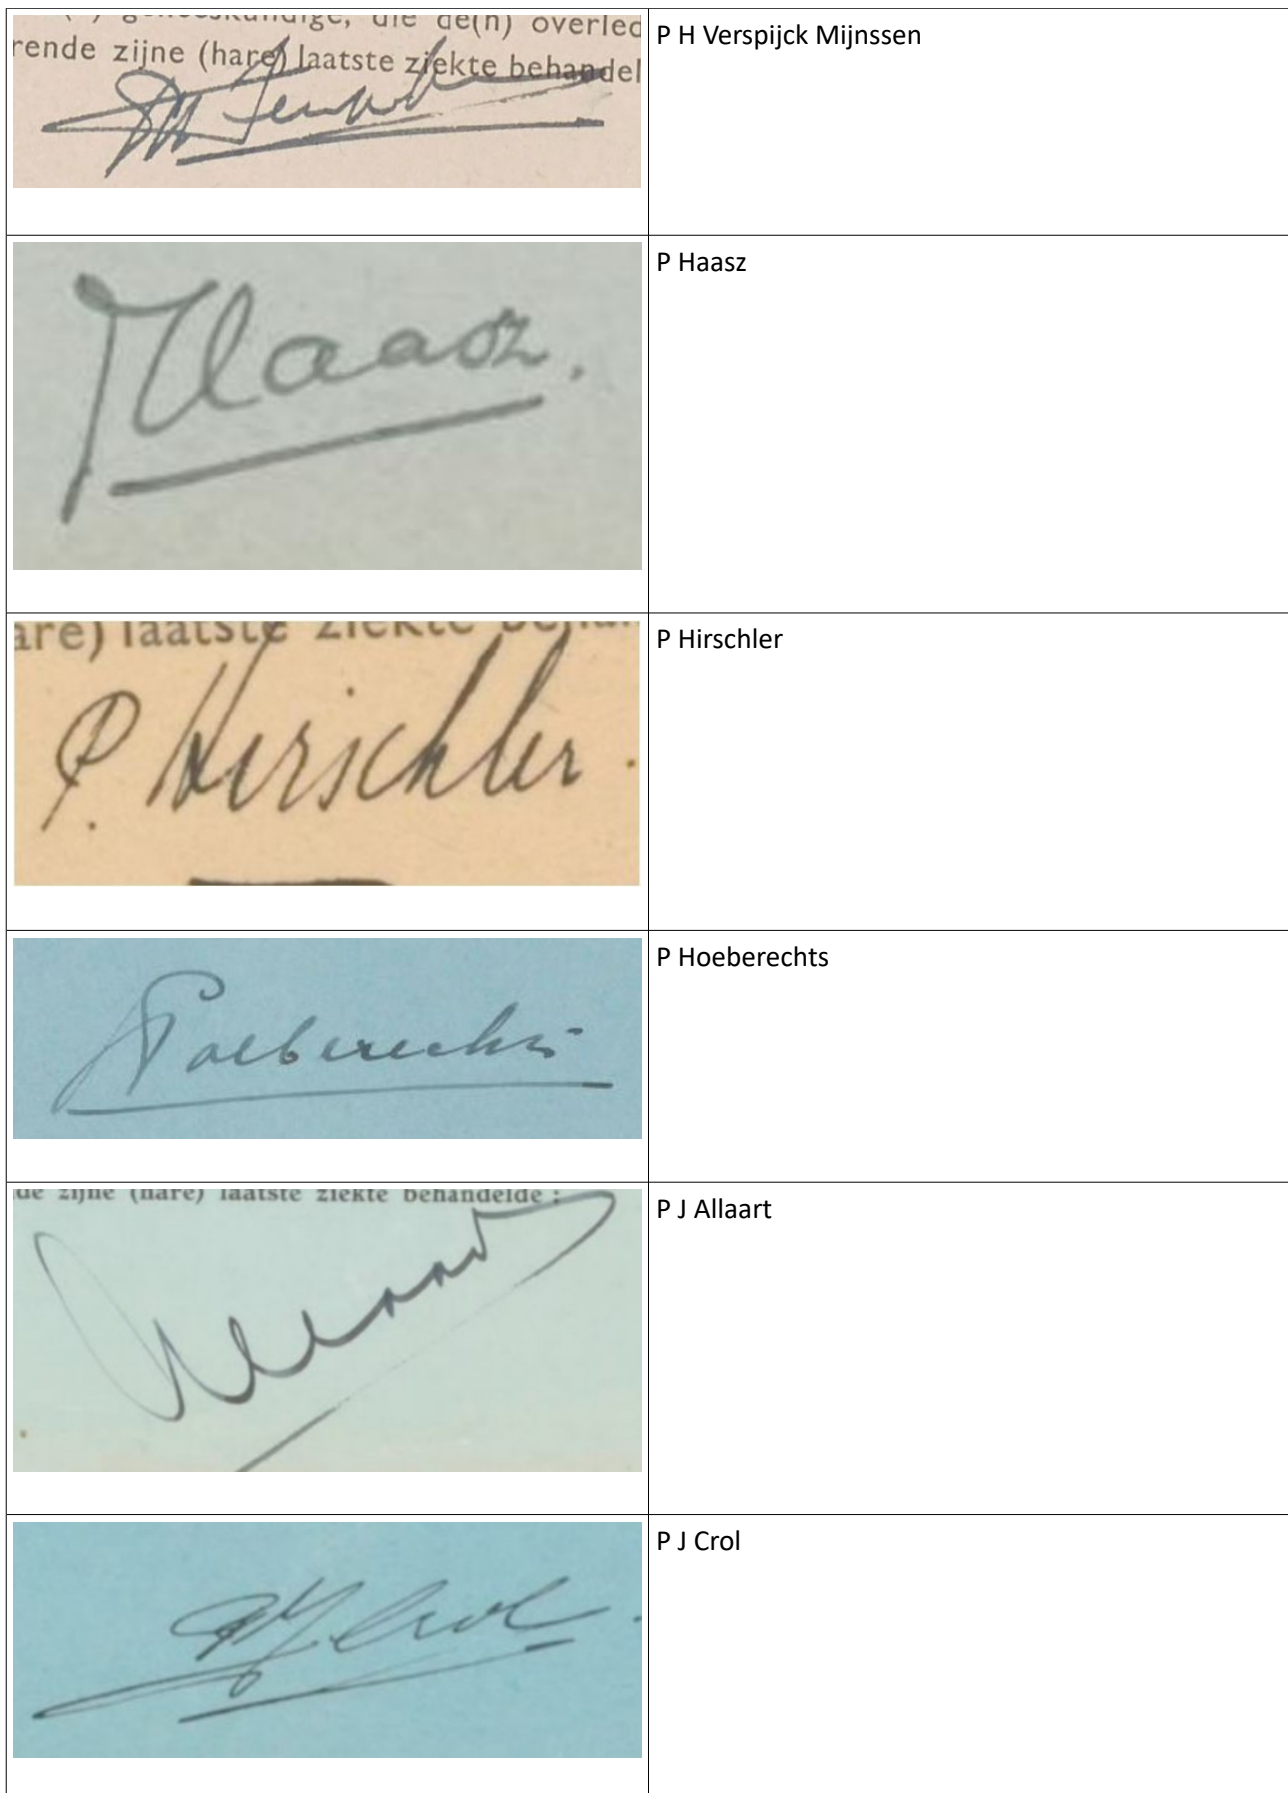 geneeskundige, die de(n) overled
rende zijne (hare) laatste ziekte behandel
P H Verspijck Mijnssen
Haasz.
P Haasz
are) laatste ziekte behan
P. Hirschler
P Hirschler
P Hoeberechts
de zijne (hare) laatste ziekte behandelde :
Allaart
P J Allaart
PJ Crol
P J Crol